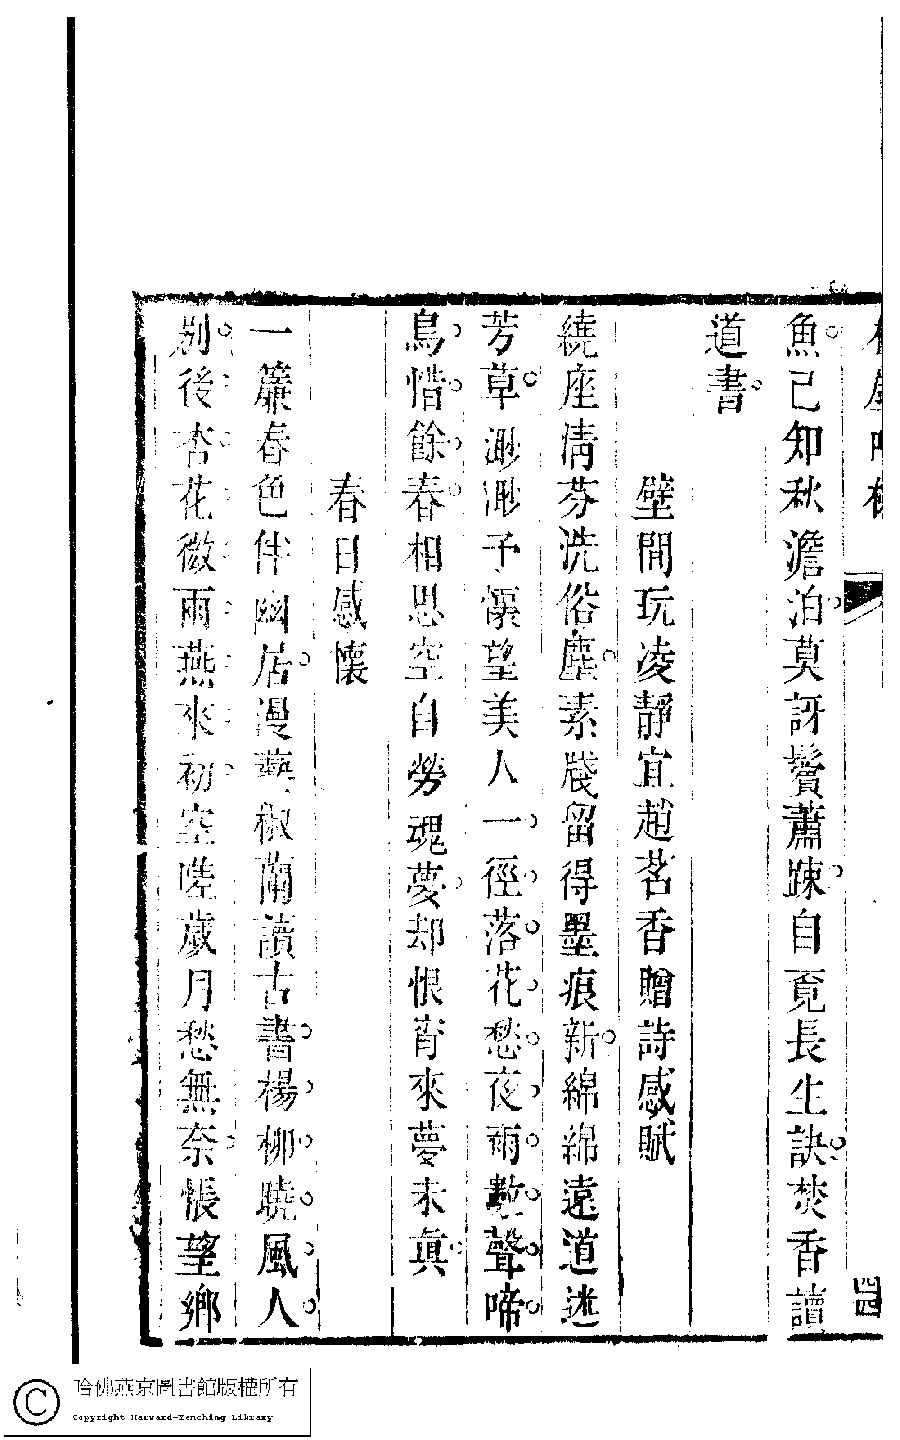 魚已知秋澹泊莫訝鬢蕭踈自覓長生訣焚香讀
道書
壁間玩凌靜宜趙茗香贈詩感賦
繞座清芬洗俗塵素牋留得墨痕新綿綿遠道迷
芳草渺渺予懷望美人一徑落花愁夜雨數聲啼
鳥惜餘春相思空自勞魂夢却恨宵來夢未真
春日感懷
一簾春色伴幽居漫爇椒蘭讀古書楊柳曉風人
別後杏花微雨燕來初空嗟歲月愁無奈悵望鄉
四
哈佛燕京圖書館版權所有
Copyright Harvard-Yenching Library